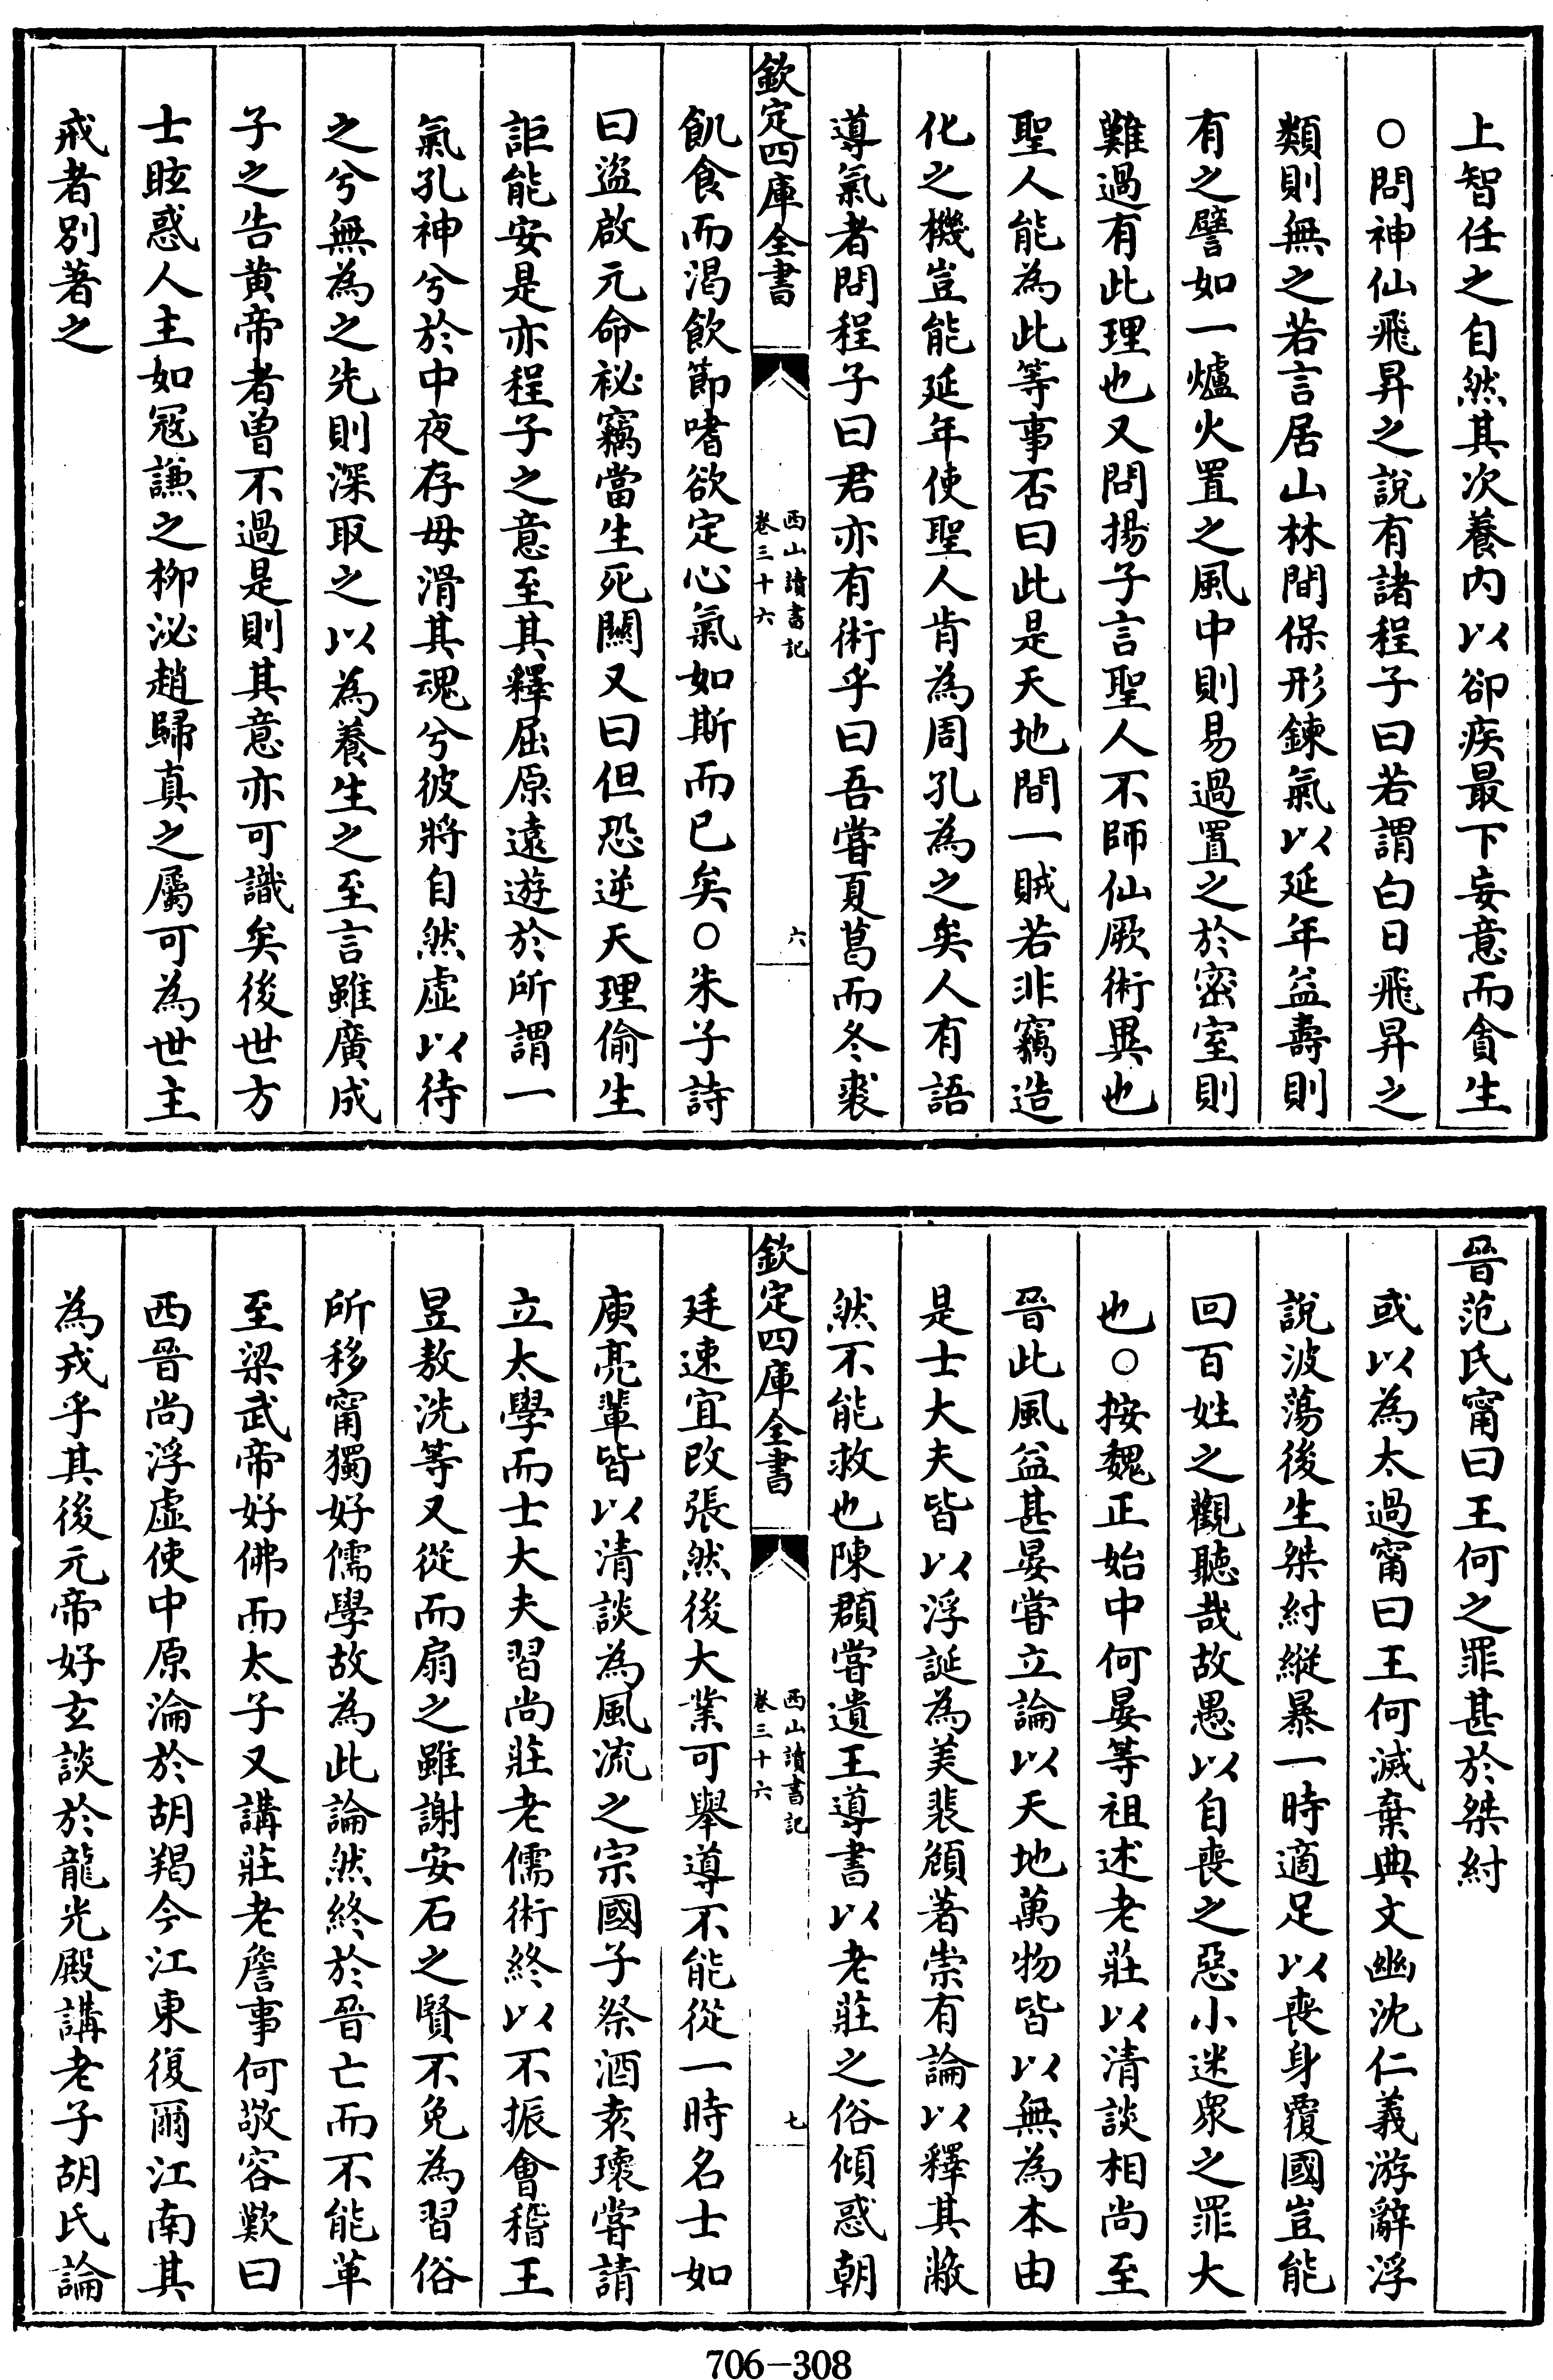 上智任之自然其次養内以卻疾最下妄意而貪生
○問神仙飛昇之說有諸程子曰若謂白日飛昇之
類則無之若言居山林間保形鍊氣以延年益壽則
有之譬如一爐火置之風中則易過置之於密室則
難過有此理也又問揚子言聖人不師仙厥術異也
聖人能為此等事否曰此是天地間一賊若非竊造
化之機豈能延年使聖人肯為周孔為之矣人有語
導氣者問程子曰君亦有術乎曰吾嘗夏葛而冬裘
欽定四庫全書
西山讀書記
卷三十六
六
飢食而渴飲節嗜欲定心氣如斯而已矣○朱子詩
曰盜啟元命祕竊當生死關又曰但恐逆天理偷生
詎能安是亦程子之意至其釋屈原遠遊於所謂一
氣孔神兮於中夜存毋滑其魂兮彼將自然虛以待
之兮無為之先則深取之以為養生之至言雖廣成
子之告黄帝者曽不過是則其意亦可識矣後世方
士眩惑人主如冦謙之柳泌趙歸真之屬可為世主
戒者別著之
晉范氏甯曰王何之罪甚於桀紂
或以為太過甯曰王何滅棄典文幽沈仁義游辭浮
說波蕩後生桀紂縱暴一時適足以喪身覆國豈能
回百姓之觀聽哉故愚以自喪之惡小迷衆之罪大
也○按魏正始中何晏等祖述老莊以清談相尚至
晉此風益甚晏嘗立論以天地萬物皆以無為本由
是士大夫皆以浮誕為美裴頠著崇有論以釋其蔽
然不能救也陳頵嘗遺王導書以老莊之俗傾惑朝
欽定四庫全書
西山讀書記
卷三十六
七
廷速宜改張然後大業可舉導不能從一時名士如
庾亮輩皆以清談為風流之宗國子祭酒袁瓌嘗請
立太學而士大夫習尚莊老儒術終以不振會稽王
昱敖洗等又從而扇之雖謝安石之賢不免為習俗
所移甯獨好儒學故為此論然終於晉亡而不能革
至梁武帝好佛而太子又講莊老詹事何敬容歎曰
西晉尚浮虛使中原淪於胡羯今江東復爾江南其
為戎乎其後元帝好玄談於龍光殿講老子胡氏論
706-308